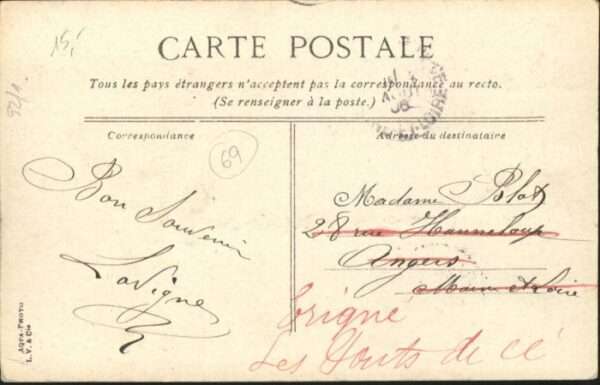 15,-
92/1
CARTE POSTALE
Tous les pays étrangers n'acceptent pas la correspondance au recto.
(Se renseigner à la poste.)
Correspondance
Adresse du destinataire
69
Bon Souvenir
Lavigne
Madame Blot
28 rue Hanneloup
Angers
Maine et Loire
Erigné
Les Ponts de cé
AQUA-PHOTO
L. V. & Cie